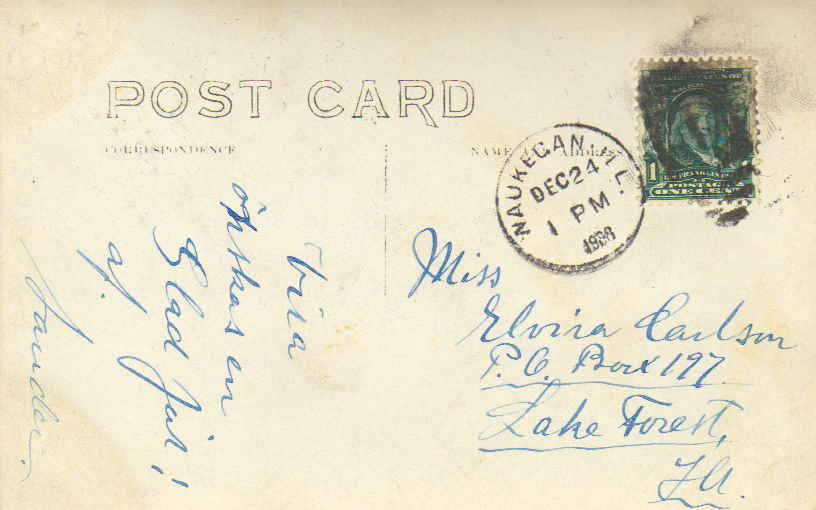 POST CARD
CORRESPONDENCE
NAME ADDRESS
WAUKEGAN, ILL.
DEC 24
1 PM
1
FRANKLIN
POSTAGE
ONE CENT
Vira
önskas en
Glad Jul!
af.
Miss
Elvira Carlson
P.O. Box 197
Lake Forest,
Ill.